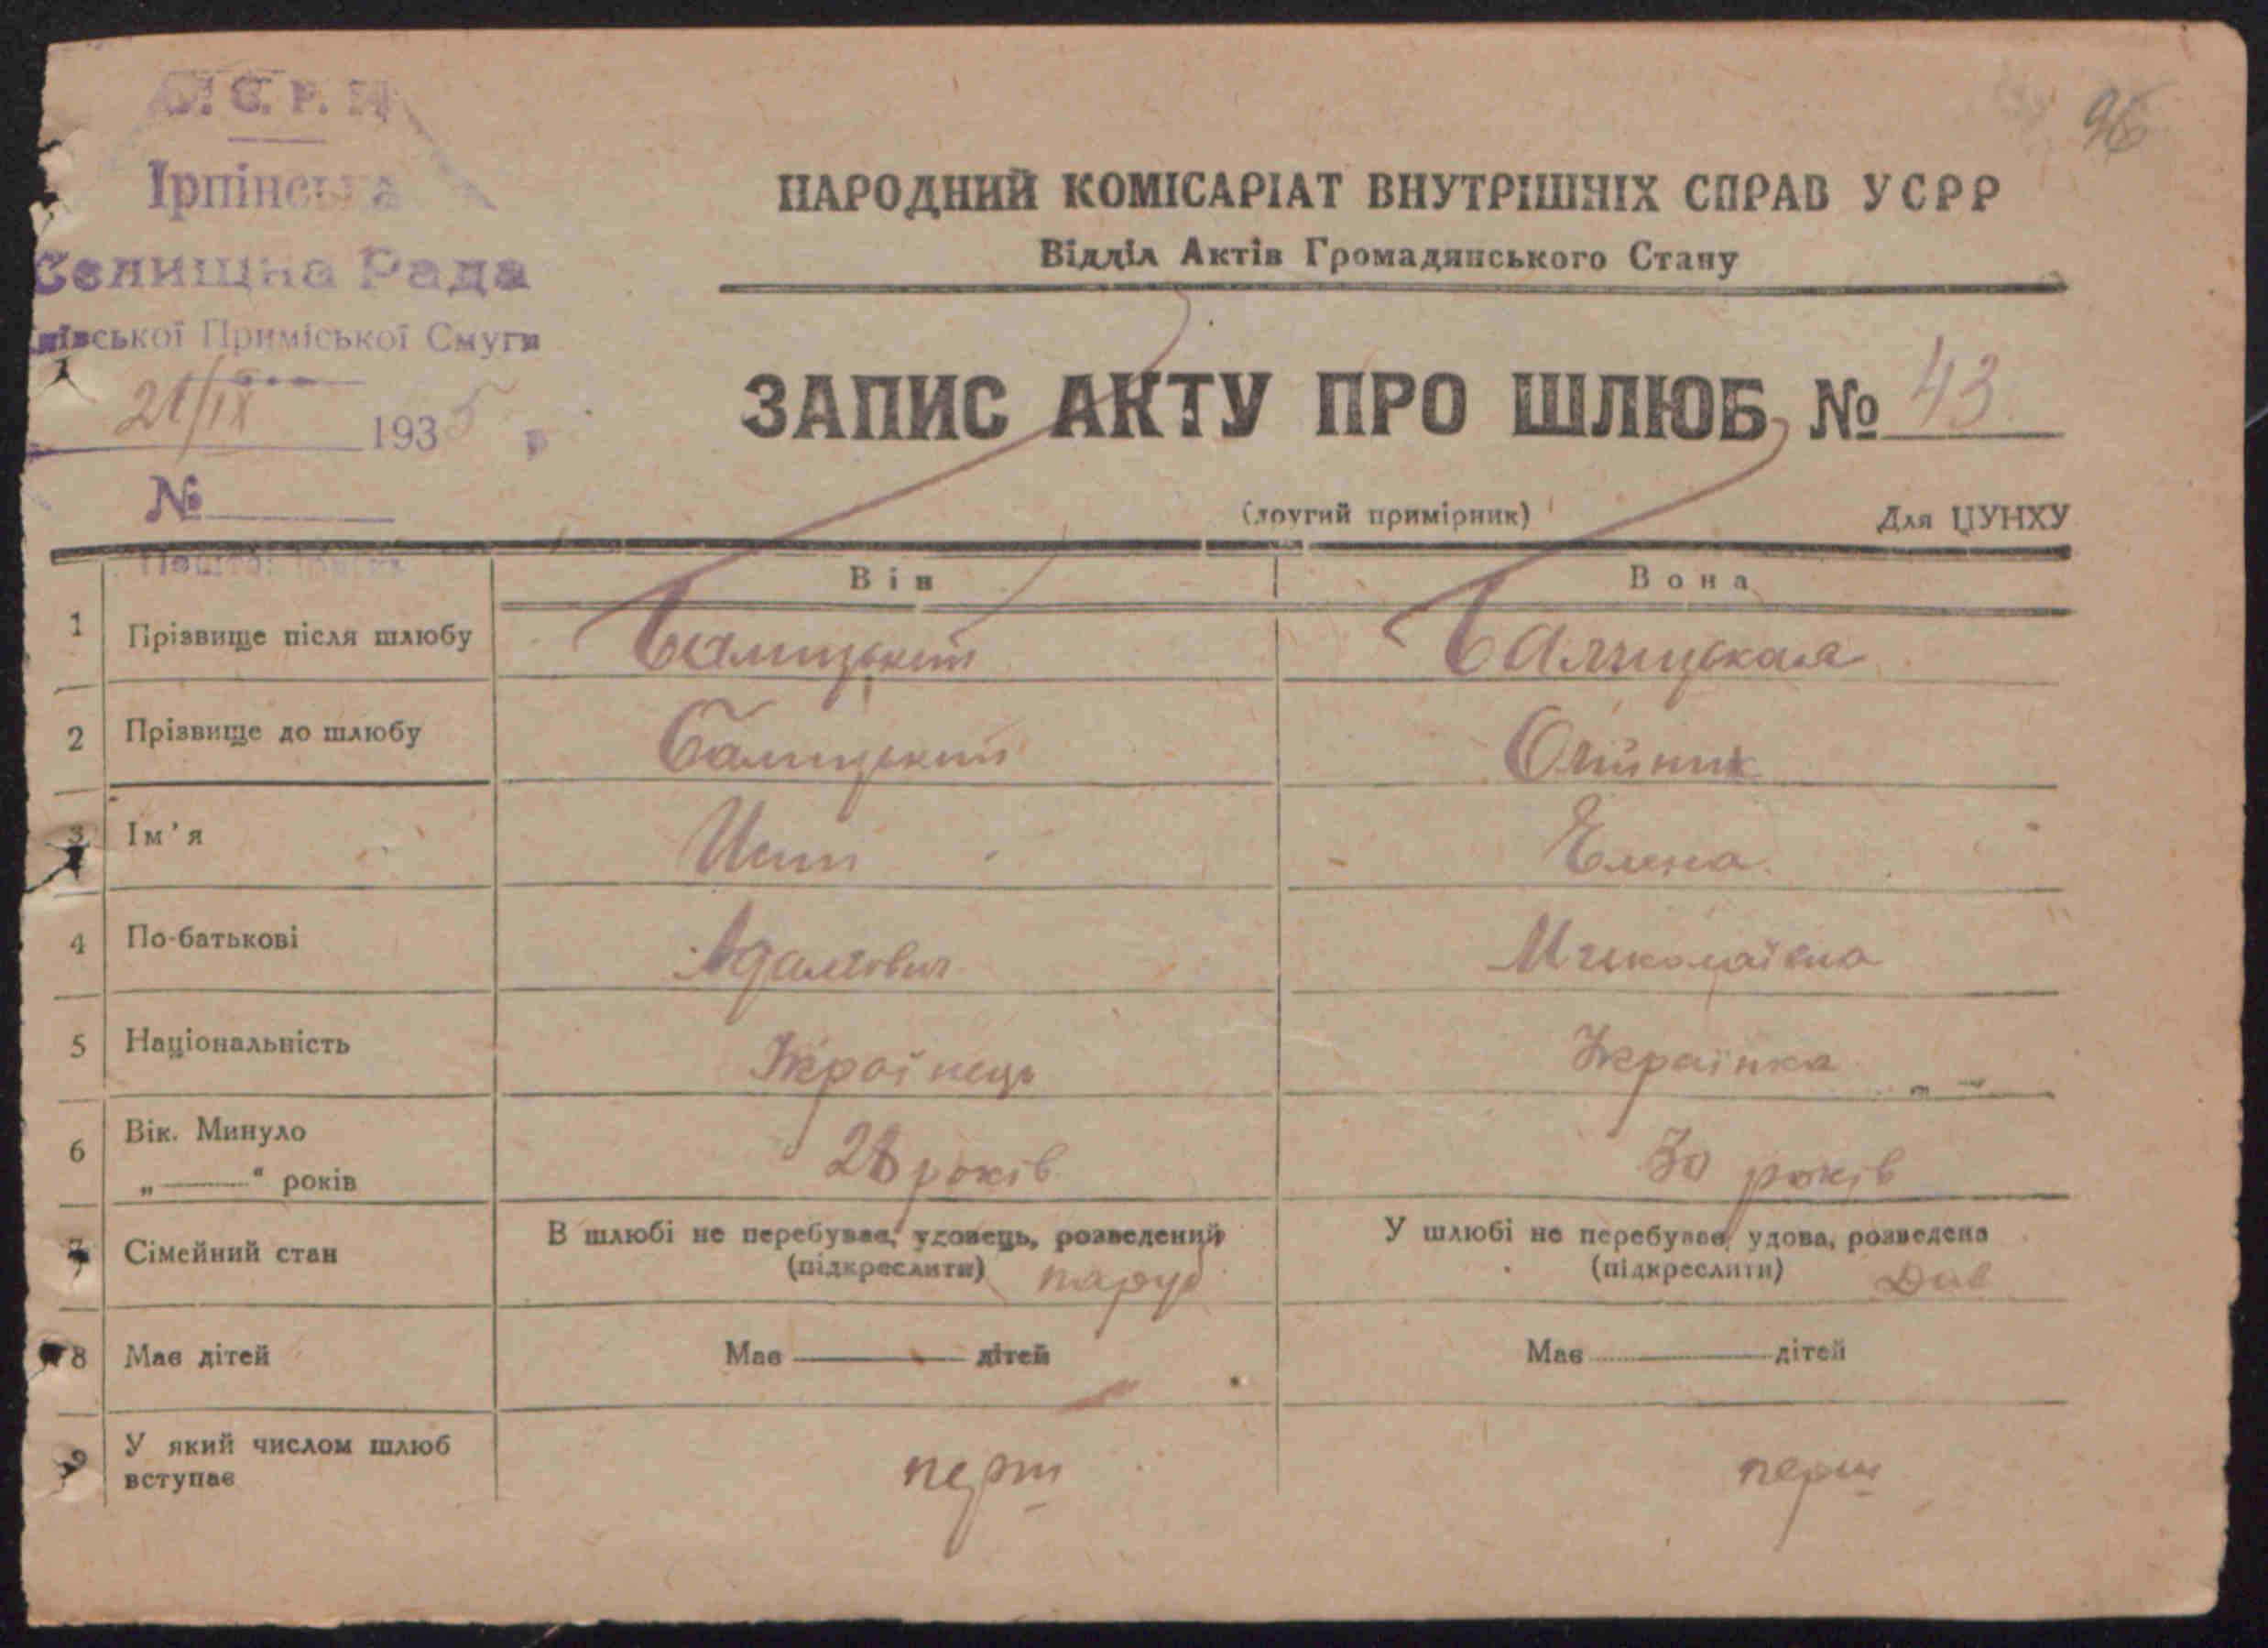 У. С. Р. Р.
96
Ірпінська
Селищна Рада
Київської Приміської Смуги
21/ІХ 1935 р
№
Пошта: Ірпінь
НАРОДНИЙ КОМІСАРІАТ ВНУТРІШНІХ СПРАВ УСРР
Відділ Актів Громадянського Стану
ЗАПИС АКТУ ПРО ШЛЮБ № 43
(другий примірник) Для ЦУНХУ
Він Вона
1 Прізвище після шлюбу Балицький Балицькая
2 Прізвище до шлюбу Балицький Олійник
3 Ім'я Елена
4 По-батькові Адамович Миколаївна
5 Національність Українець Українка
6 Вік. Минуло
„ —— “ років 28 років 30 років
7 Сімейний стан В шлюбі не перебував, удовець, розведений У шлюбі не перебуває, удова, розведена
(підкреслити) паруб (підкреслити) Дів
8 Має дітей Має —— дітей Має —— дітей
9 У який числом шлюб вступає перш перш